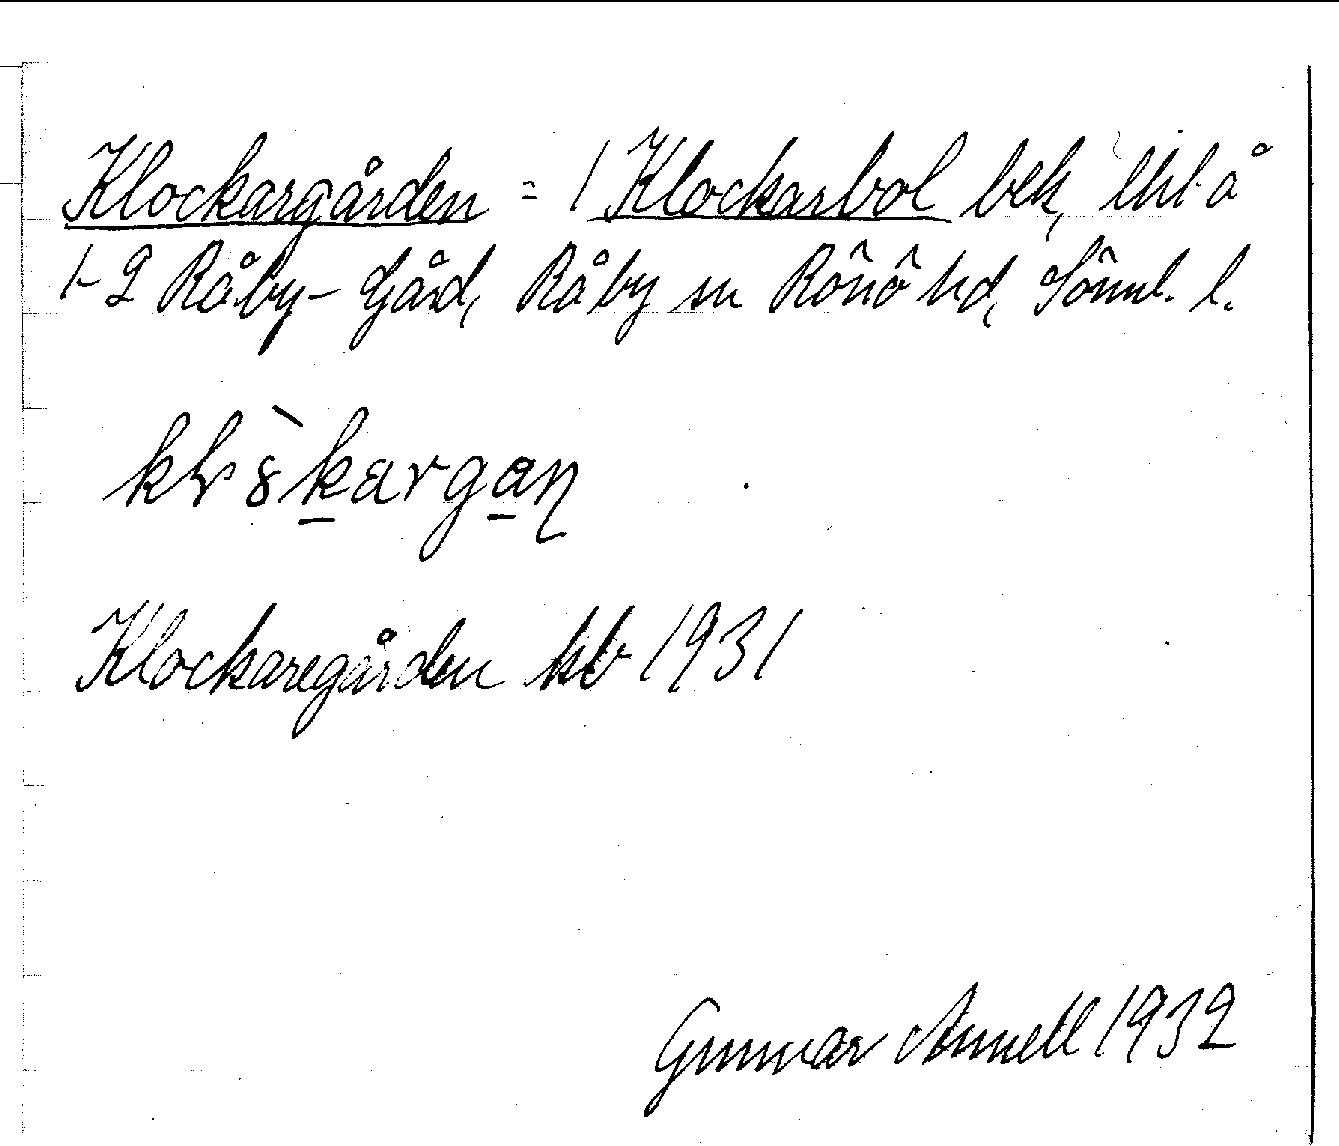 Klockargården = 1 Klockarbol bek, lht å
1-2 Råby-Gård, Råby sn Rönö hd, Söml. l.
Klockaregården kb 1931
Gunnar Annell 1932